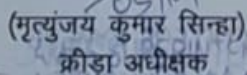 (मृत्युंजय कुमार सिन्हा)
क्रीड़ा अधीक्षक